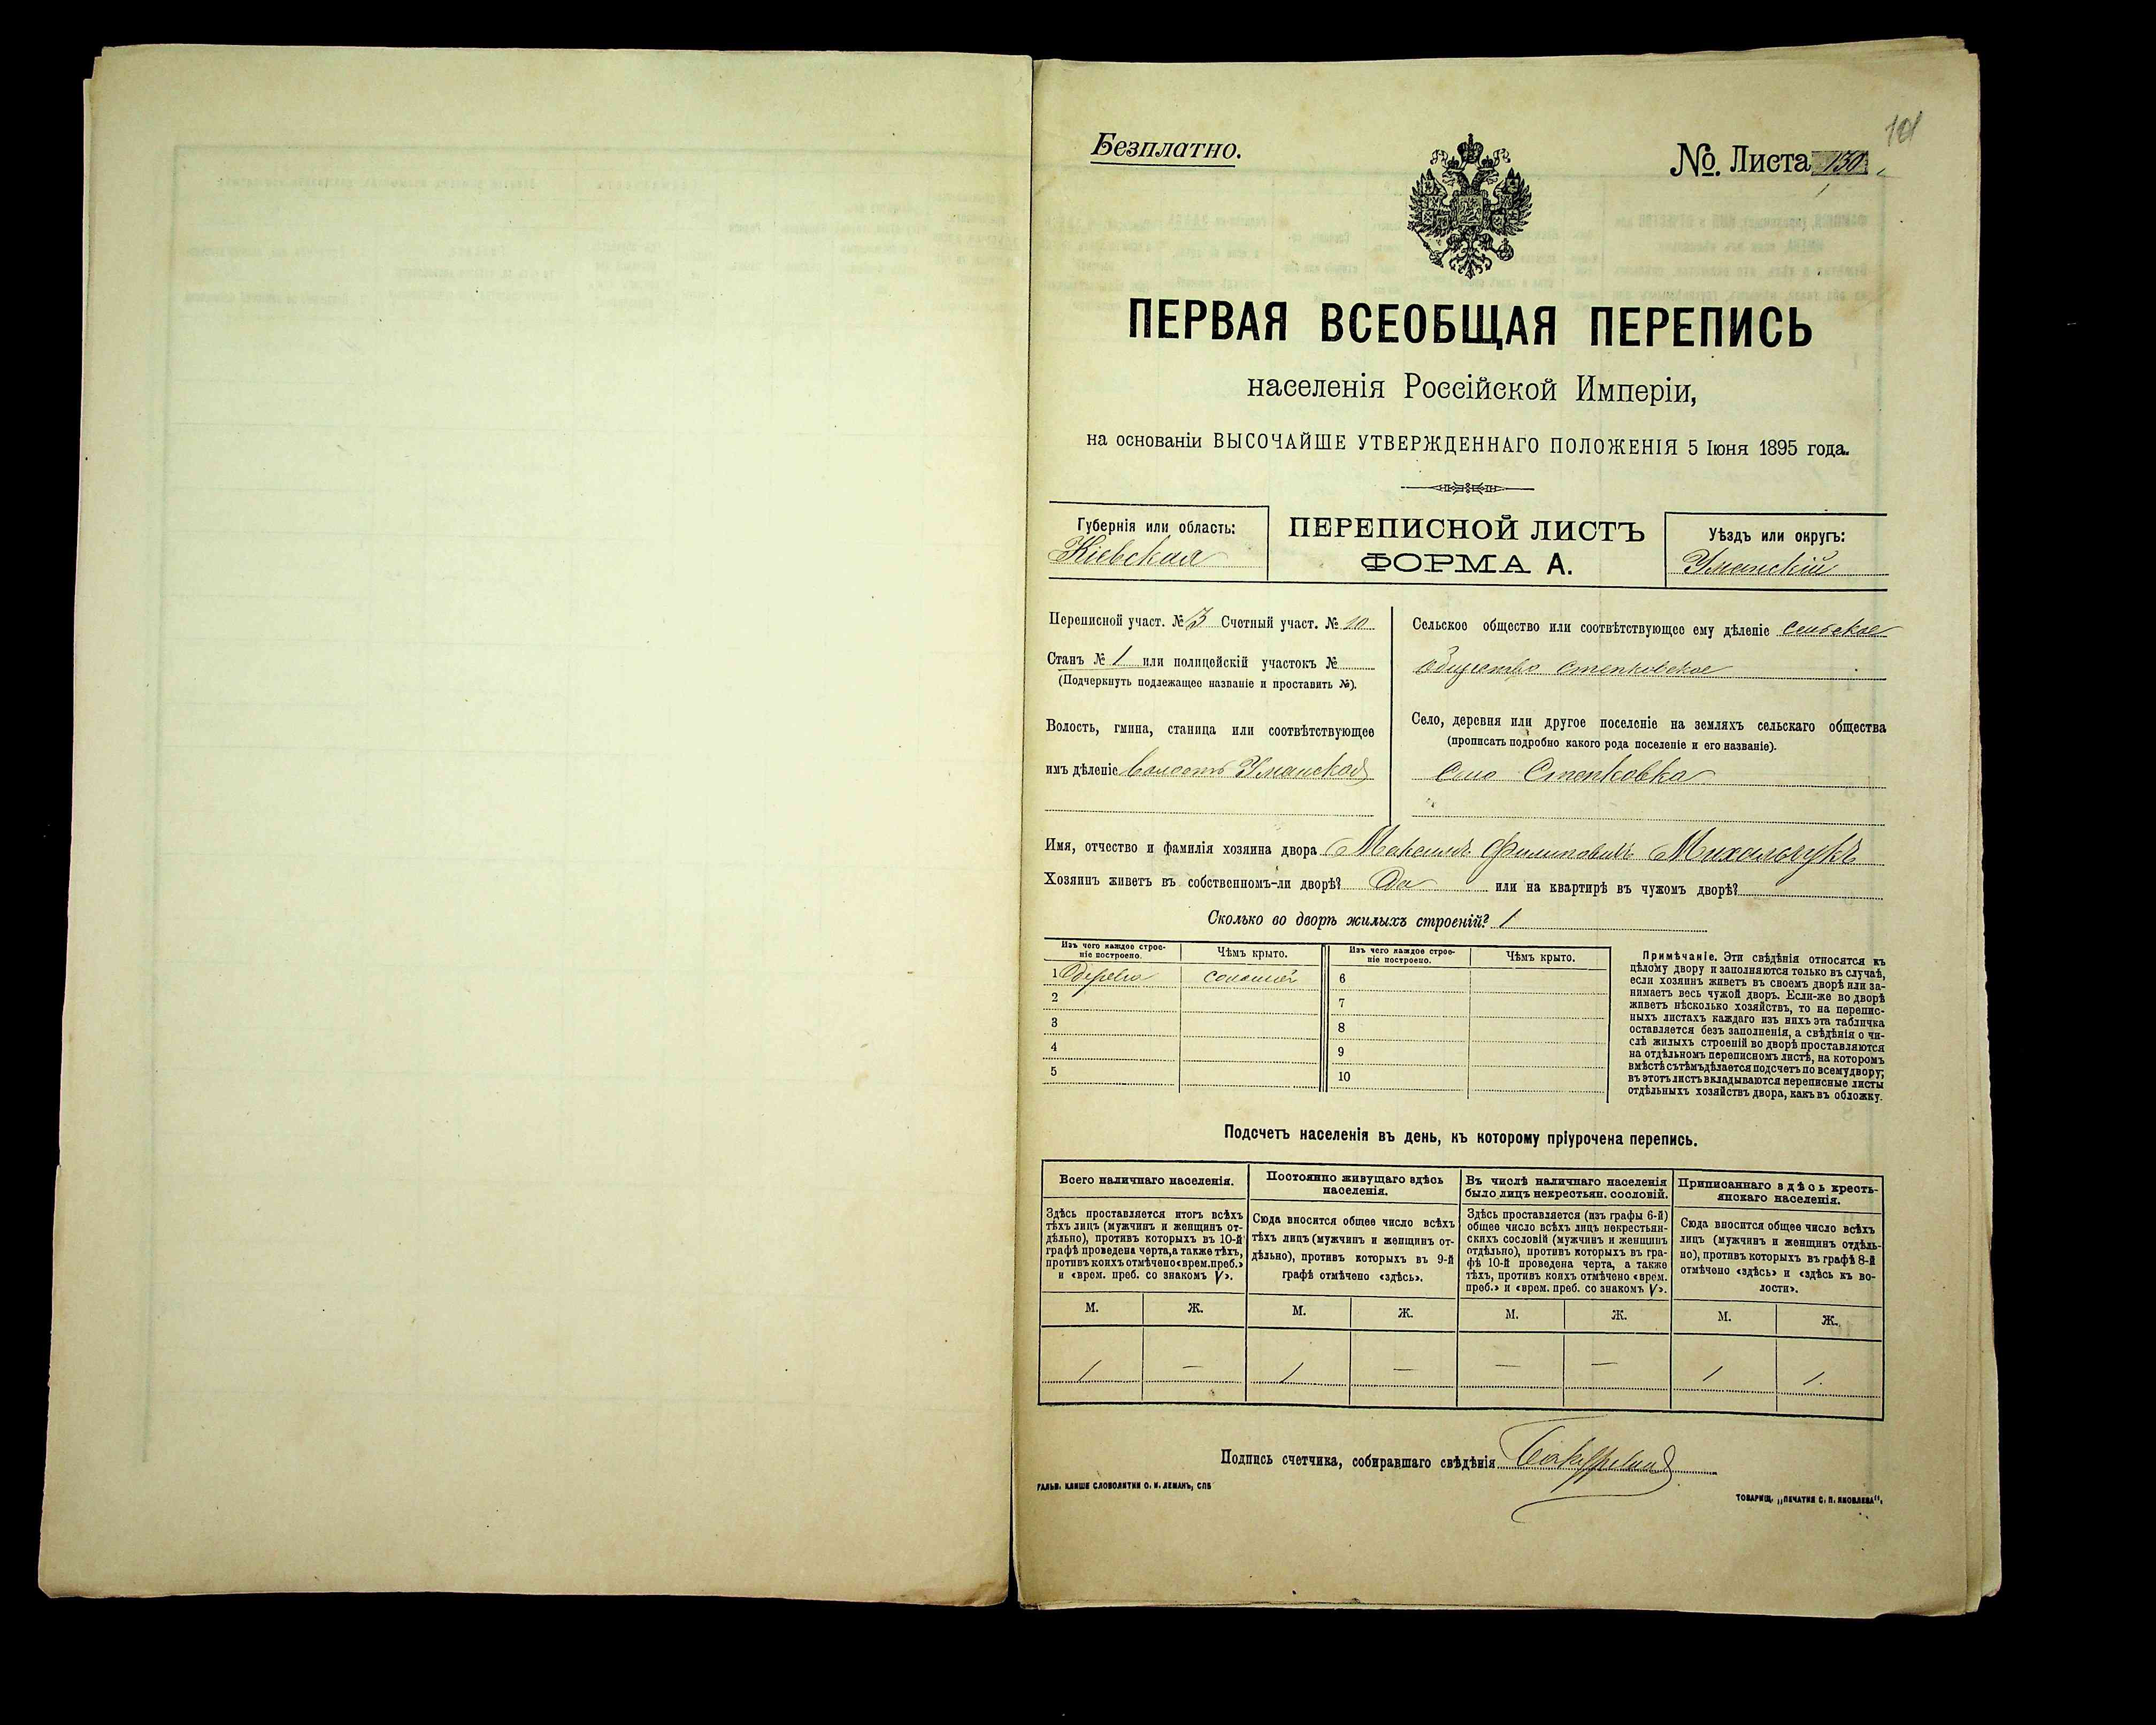 101
Безплатно.
№. Листа 130
ПЕРВАЯ ВСЕОБЩАЯ ПЕРЕПИСЬ
населенія Россійской Имперіи,
на основаніи ВЫСОЧАЙШЕ УТВЕРЖДЕННАГО ПОЛОЖЕНІЯ 5 Іюня 1895 года.
Губернія или область:
Кіевская
ПЕРЕПИСНОЙ ЛИСТЪ
ФОРМА А.
Уѣздъ или округъ:
Уманскій
Переписной участ. № 3 Счетный участ. № 10
Станъ № 1 или полицейскій участокъ №
(Подчеркнуть подлежащее названіе и проставить №).
Волость, гмина, станица или соотвѣтствующее
имъ дѣленіе волость Уманская
Сельское общество или соотвѣтствующее ему дѣленіе сельское
общество степковское
Село, деревня или другое поселеніе на земляхъ сельскаго общества
(прописать подробно какого рода поселеніе и его названіе).
Село Степковка
Имя, отчество и фамилія хозяина двора Максимъ Филиповичъ Михальчукъ
Хозяинъ живетъ въ собственномъ-ли дворѣ? Да или на квартирѣ въ чужомъ дворѣ?
Сколько во дворѣ жилыхъ строеній? 1
Изъ чего каждое строе-
ніе построено.
Чѣмъ крыто.
Изъ чего каждое строе-
ніе построено.
Чѣмъ крыто.
1 дерево соломой 6
2 7
3 8
4 9
5 10
Примѣчаніе. Эти свѣдѣнія относятся къ
цѣлому двору и заполняются только въ случаѣ,
если хозяинъ живетъ въ своемъ дворѣ или за-
нимаетъ весь чужой дворъ. Если-же во дворѣ
живетъ нѣсколько хозяйствъ, то на перепис-
ныхъ листахъ каждаго изъ нихъ эта табличка
оставляется безъ заполненія, а свѣдѣнія о чи-
слѣ жилыхъ строеній во дворѣ проставляются
на отдѣльномъ переписномъ листѣ, на которомъ
вмѣстѣ съ тѣмъ дѣлается подсчетъ по всему двору;
въ этотъ листъ вкладываются переписные листы
отдѣльныхъ хозяйствъ двора, какъ въ обложку.
Подсчетъ населенія въ день, къ которому пріурочена перепись.
Всего наличнаго населенія.
Здѣсь проставляется итогъ всѣхъ
тѣхъ лицъ (мужчинъ и женщинъ от-
дѣльно), противъ которыхъ въ 10-й
графѣ проведена черта, а также тѣхъ,
противъ коихъ отмѣчено «врем. преб.»
и «врем. преб. со знакомъ V».
Постоянно живущаго здѣсь
населенія.
Сюда вносится общее число всѣхъ
тѣхъ лицъ (мужчинъ и женщинъ от-
дѣльно), противъ которыхъ въ 9-й
графѣ отмѣчено «здѣсь».
Въ числѣ наличнаго населенія
было лицъ некрестьян. сословій.
Здѣсь проставляется (изъ графы 6-й)
общее число всѣхъ лицъ некрестьян-
скихъ сословій (мужчинъ и женщинъ
отдѣльно), противъ которыхъ въ гра-
фѣ 10-й проведена черта, а также
тѣхъ, противъ коихъ отмѣчено «врем.
преб.» и «врем. преб. со знакомъ V».
Приписаннаго здѣсь кресть-
янскаго населенія.
Сюда вносится общее число всѣхъ
лицъ (мужчинъ и женщинъ отдѣль-
но), противъ которыхъ въ графѣ 8-й
отмѣчено «здѣсь» и «здѣсь къ во-
лости».
М. Ж. М. Ж. М. Ж. М. Ж.
1 — 1 — — — 1 1.
Подпись счетчика, собиравшаго свѣдѣнія
ГАЛЬВ. КЛИШЕ СЛОВОЛИТНИ О. И. ЛЕМАНЪ, СПБ
ТОВАРИЩ. „ПЕЧАТНЯ С. П. ЯКОВЛЕВА“.